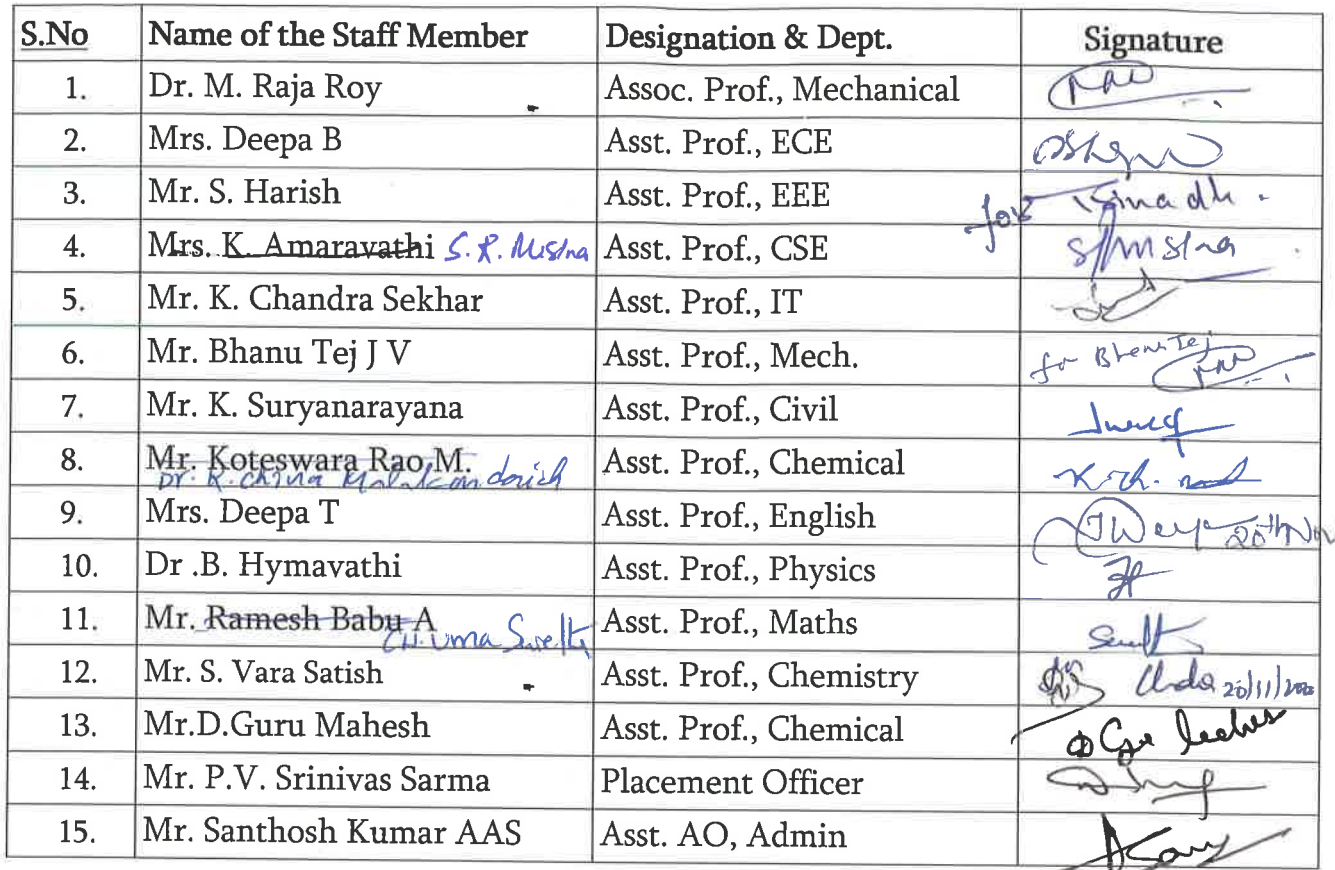 S.No Name of the Staff Member Designation & Dept. Signature
1. Dr. M. Raja Roy Assoc. Prof., Mechanical
2. Mrs. Deepa B Asst. Prof., ECE
3. Mr. S. Harish Asst. Prof., EEE for
4. Mrs. K. Amaravathi S. R. Mishra Asst. Prof., CSE
5. Mr. K. Chandra Sekhar Asst. Prof., IT
6. Mr. Bhanu Tej J V Asst. Prof., Mech. for Bhanu Tej
7. Mr. K. Suryanarayana Asst. Prof., Civil
8. Mr. Koteswara Rao M. Asst. Prof., Chemical
Dr. K. China
9. Mrs. Deepa T Asst. Prof., English 20th Nov
10. Dr .B. Hymavathi Asst. Prof., Physics
11. Mr. Ramesh Babu A Asst. Prof., Maths
CH. Uma
12. Mr. S. Vara Satish Asst. Prof., Chemistry
13. Mr.D.Guru Mahesh Asst. Prof., Chemical
14. Mr. P.V. Srinivas Sarma Placement Officer
15. Mr. Santhosh Kumar AAS Asst. AO, Admin